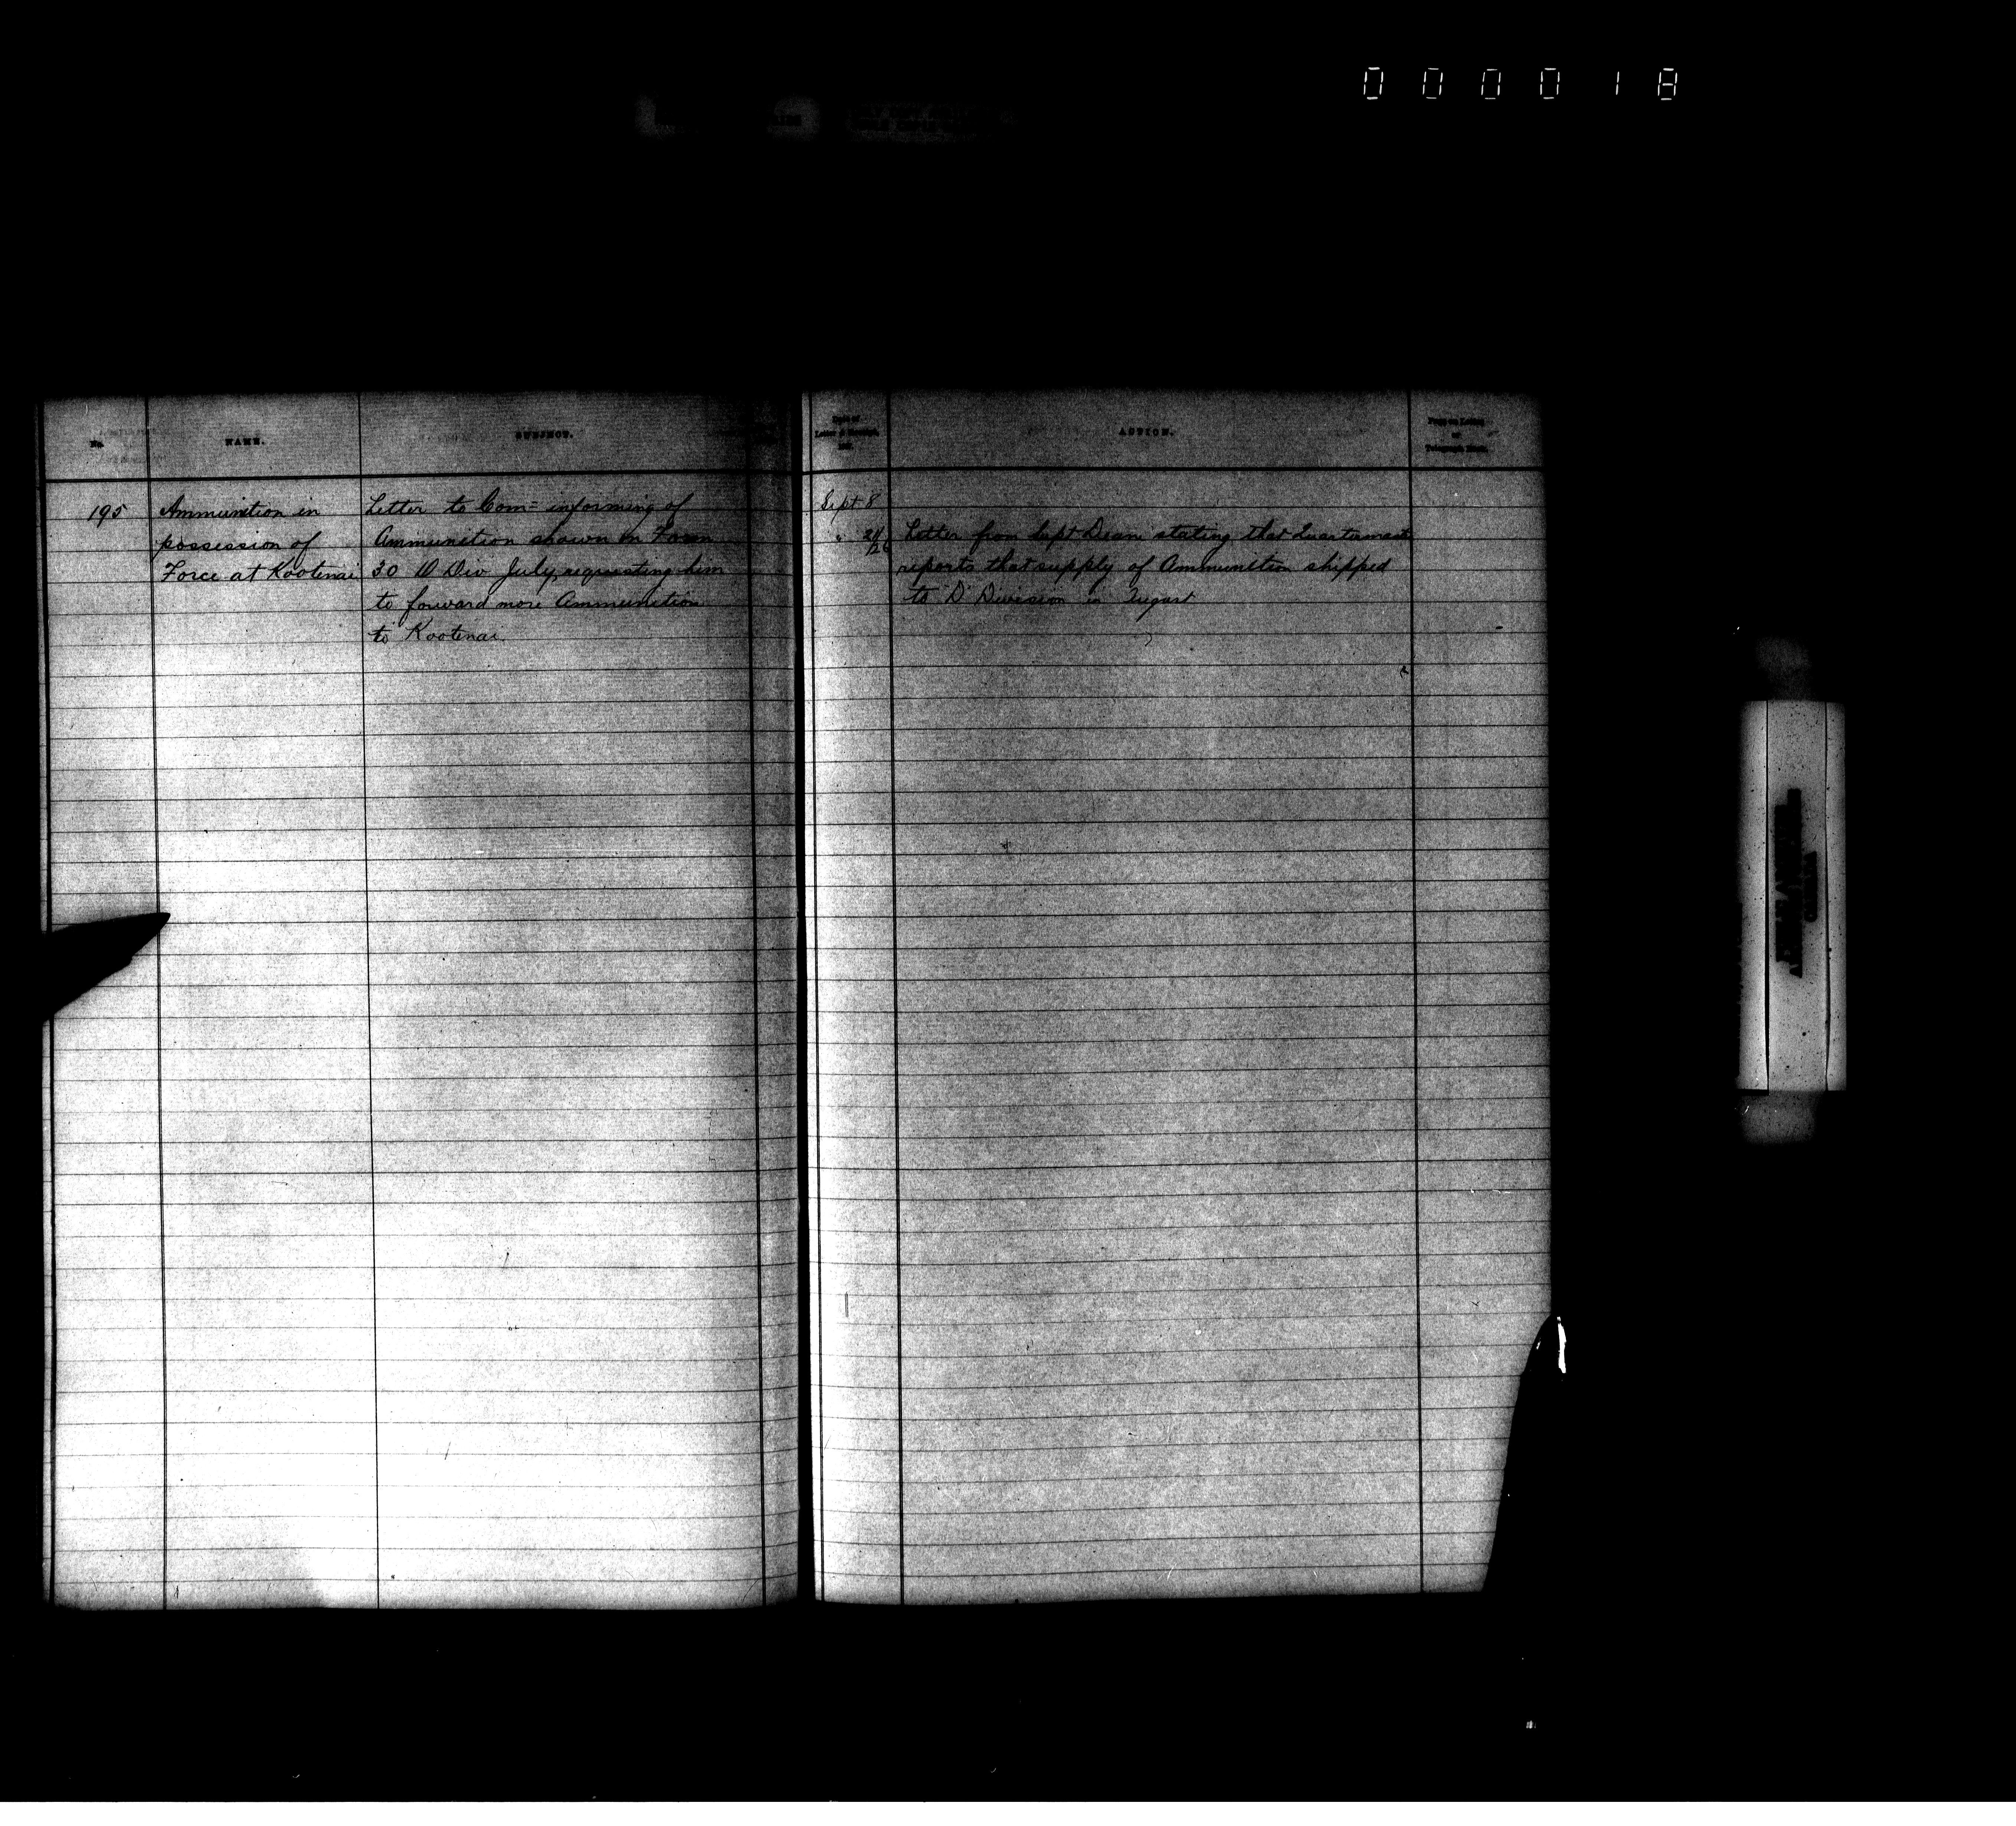 000018
No.
NAME.
SUBJECT.
Date of
Letter & Receipt,
188
ACTION.
Page on Letter
or
Telegraph Book.
195
Ammunition in
possession of
Force at Kootenai
Letter to Com= informing of
Ammunition shown on Form
30 D Div July, requesting him
to forward more Ammunition
to Kootenai.
Sept 8
" 21/26
Letter from Supt Dean stating that Quartermaster
reports that supply of Ammunition shipped
to "D" Division in August